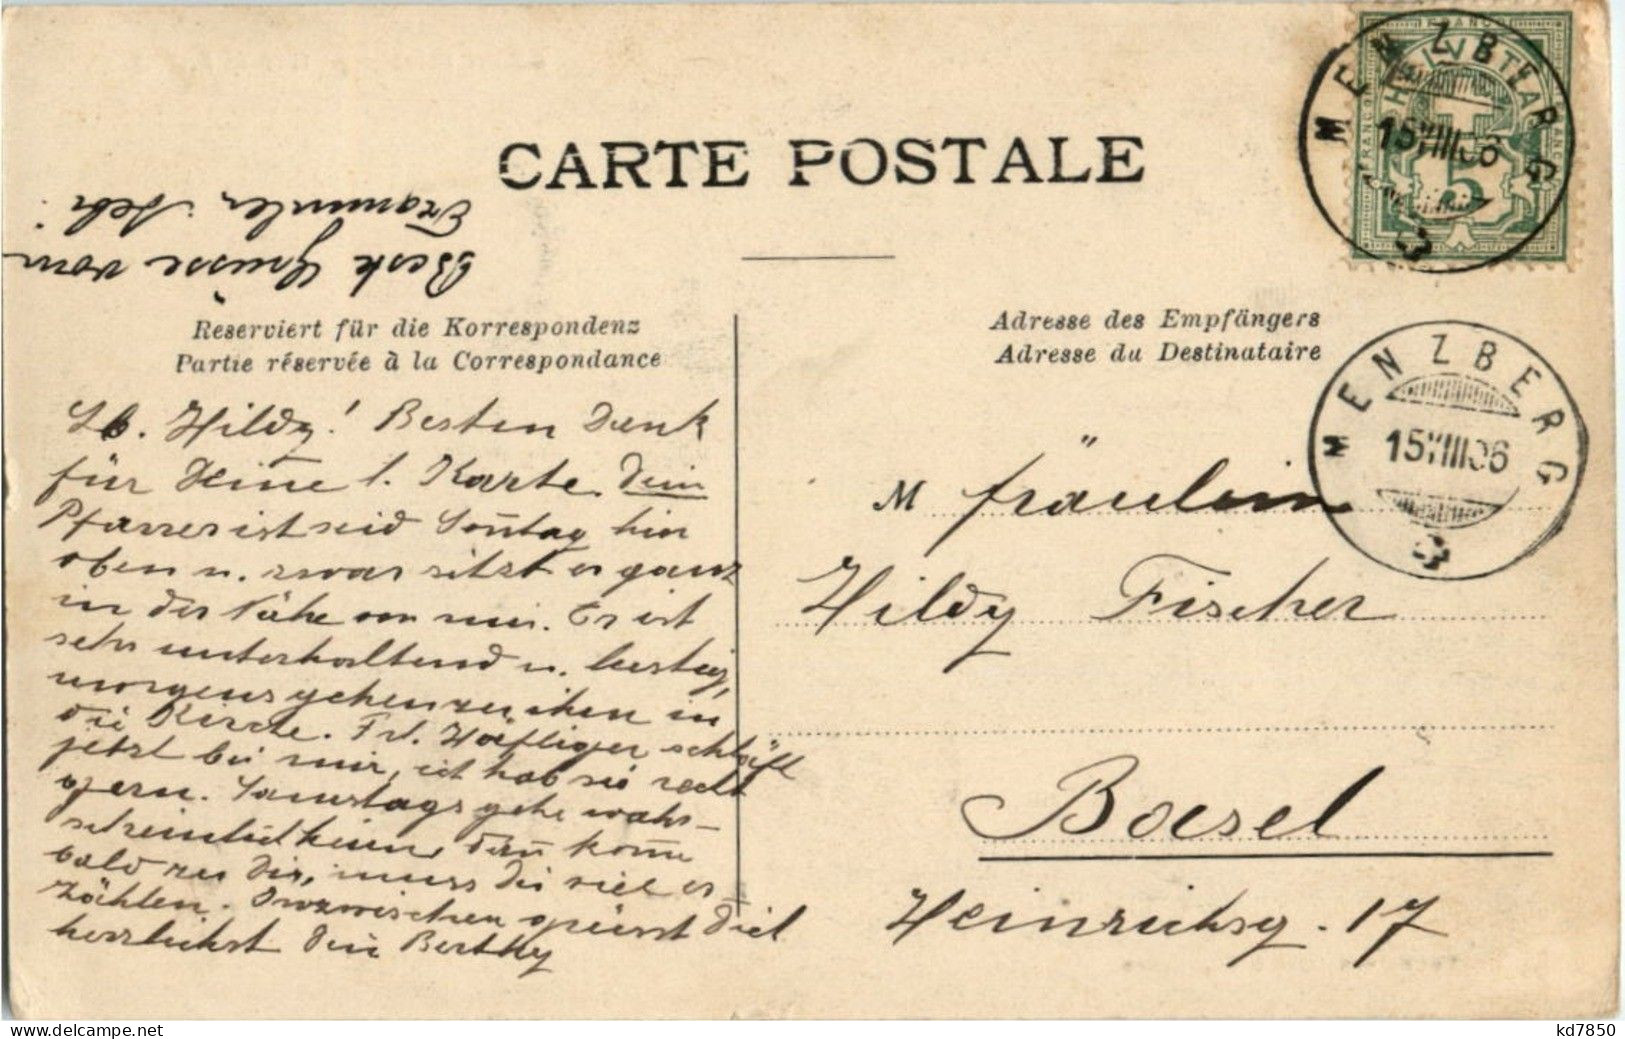 CARTE POSTALE
Beste Grüsse vom
Reserviert für die Korrespondenz
Partie réservée à la Correspondance
Adresse des Empfängers
Adresse du Destinataire
MENZBERG
15 VIII 06
FRANCO
HELVETIA
5
MENZBERG
15 VIII 06
Lb. Hildy! Besten Dank
für Deine l. Karte. Dein
Pfarrer ist seid Son̄tag hin
oben u. zwar sitzt er ganz
in der Nähe von mir. Er ist
sehr unterhaltend u. lustig,
morgens gehen zu ihm in
die Kirche. Frl. Häfliger schläft
jetzt bei mir, ich hab sie recht
gern. Samstags gehe wahr-
scheinlich heim, dan̄ kom̄e
bald zu Dir, muss dir viel er-
zählen. Inzwischen grüsst Dich
herzlichst Dein Berthy
M fräulein
Hildy Fischer
Basel
Heinrichsg. 17
kd7850